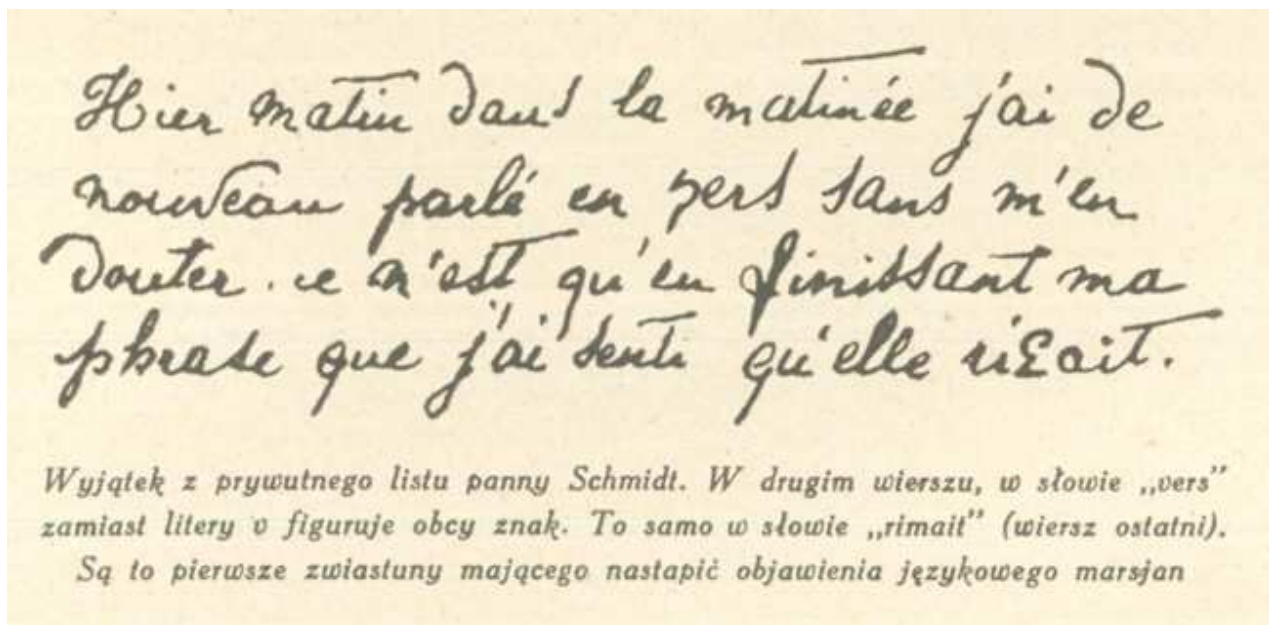 Hier matin dans la matinée j'ai de
nouveau parlé en vers sans m'en
douter. ce n'est qu'en finissant ma
phrase que j'ai senti qu'elle
Wyjątek z prywutnego listu panny Schmidt. W drugim wierszu, w słowie „vers”
zamiast litery v figuruje obcy znak. To samo w słowie „rimait” (wiersz ostatni).
Są to pierwsze zwiastuny mającego nastąpić objawienia językowego marsjan